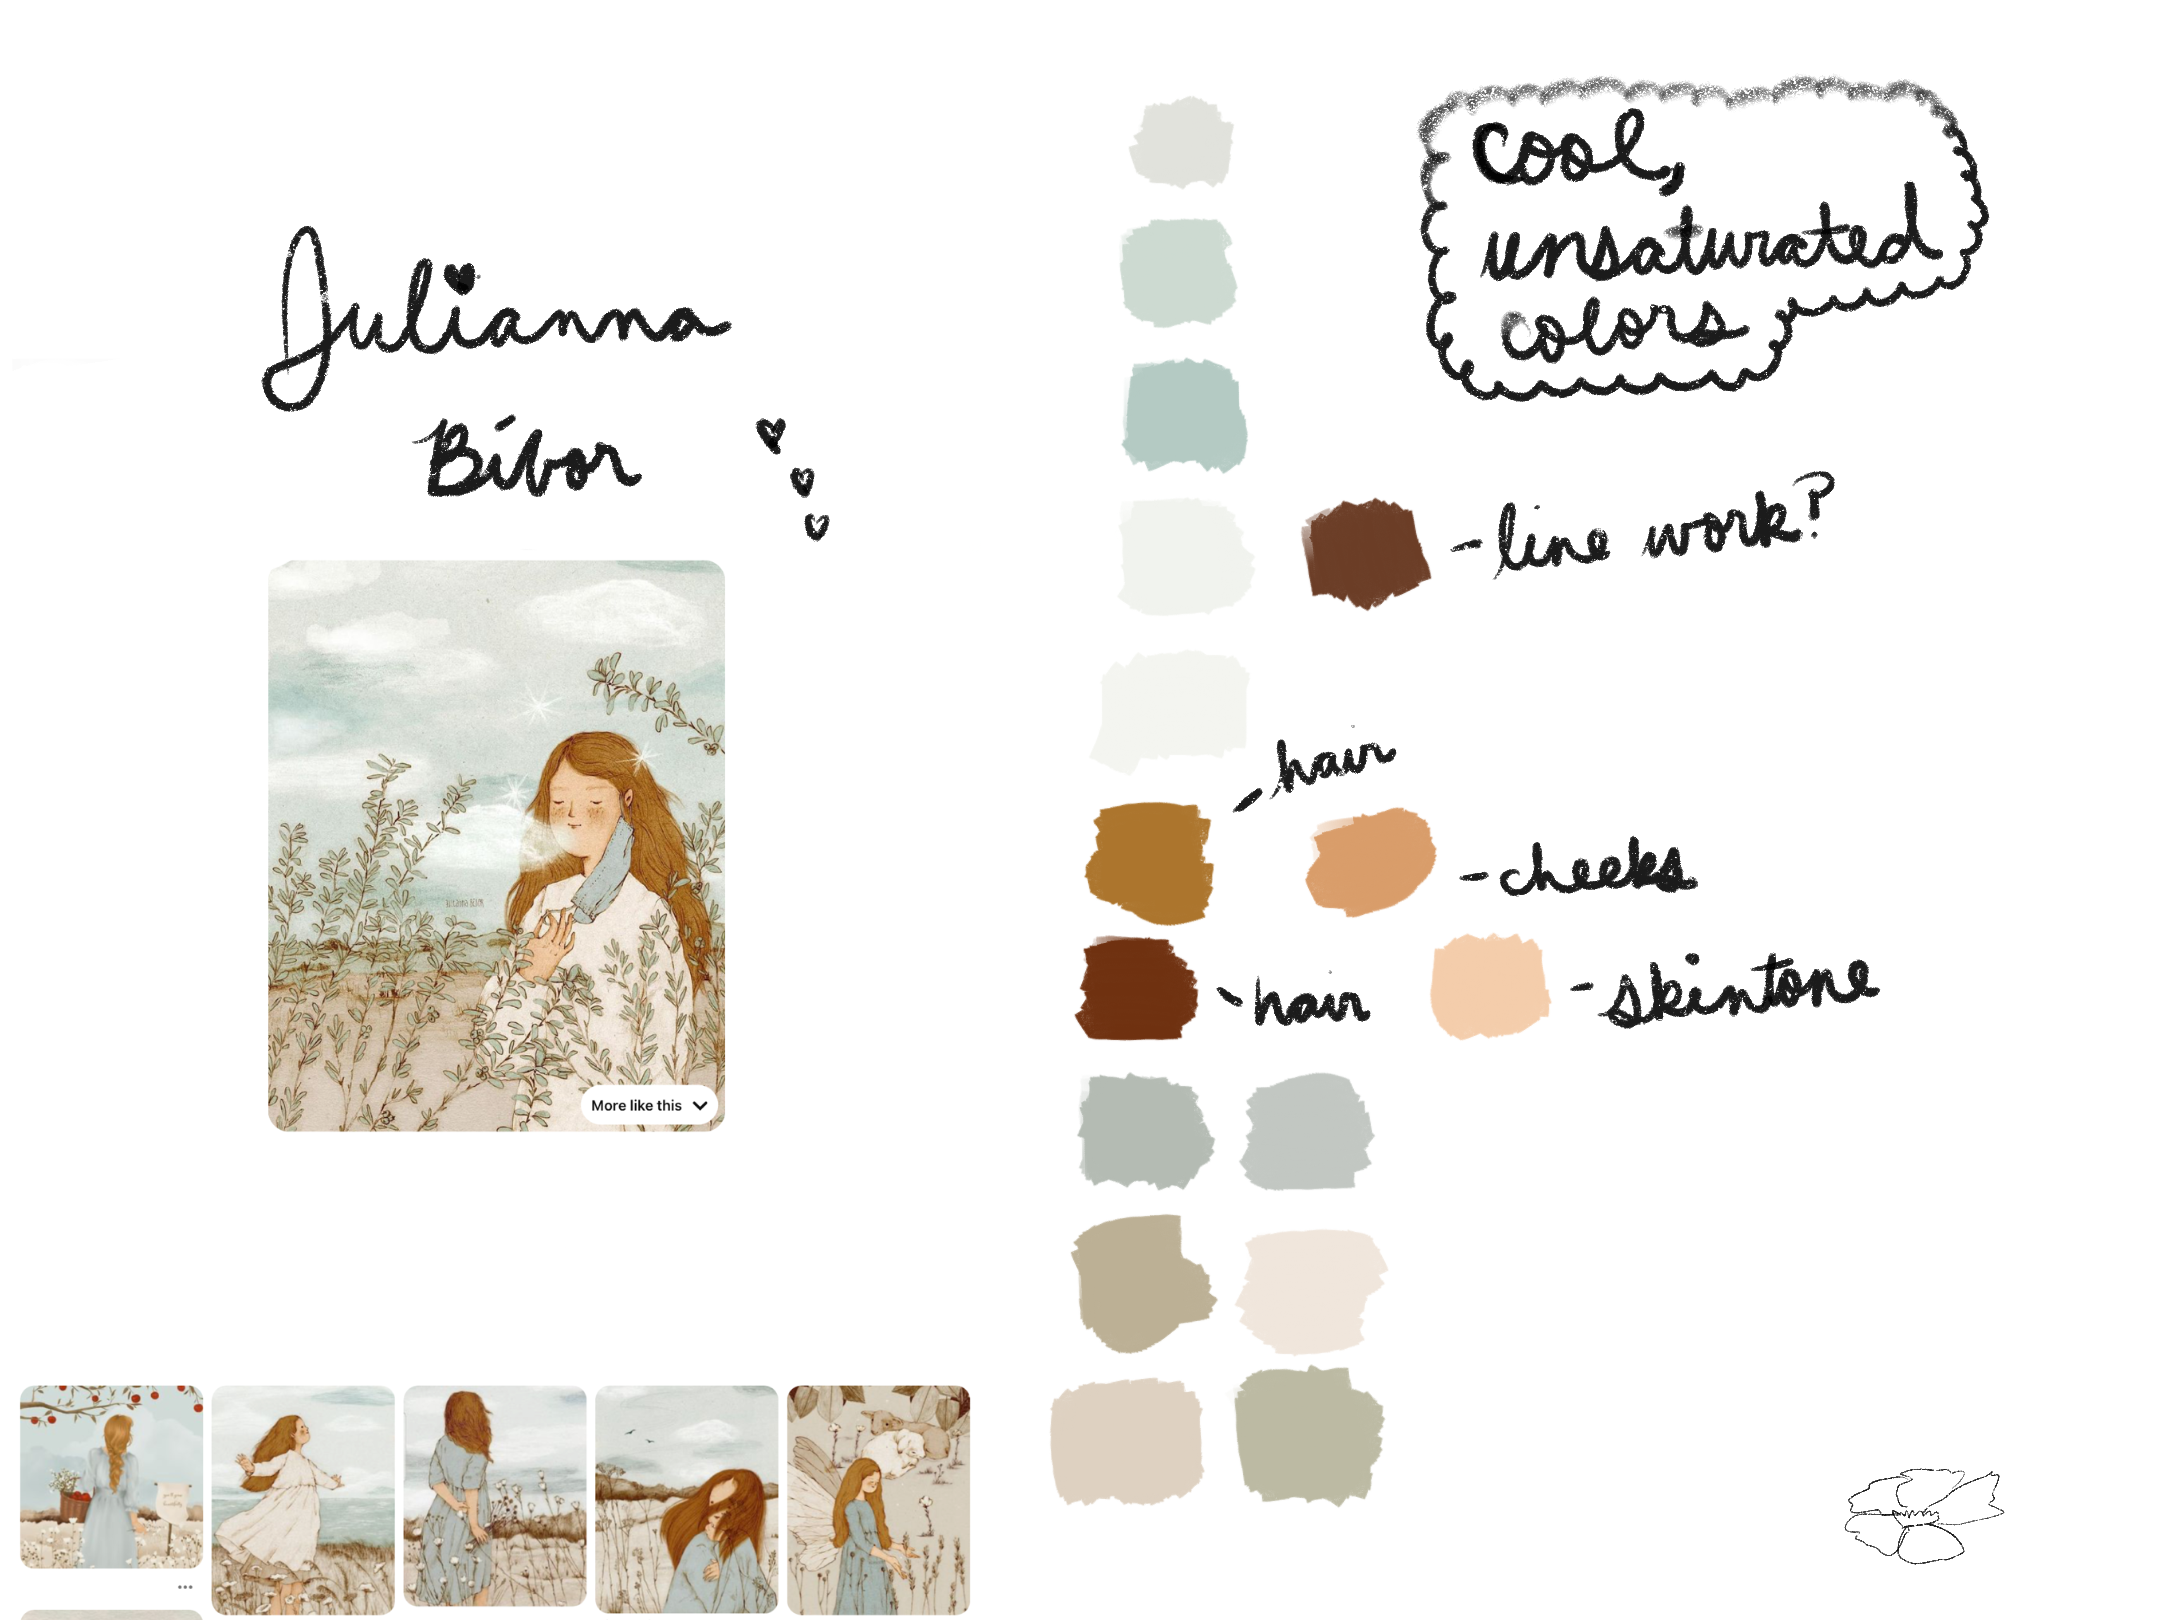 Julianna
Bíbor
More like this
cool,
unsaturated
colors
- line work?
- hair
- cheeks
- hair
- skintone